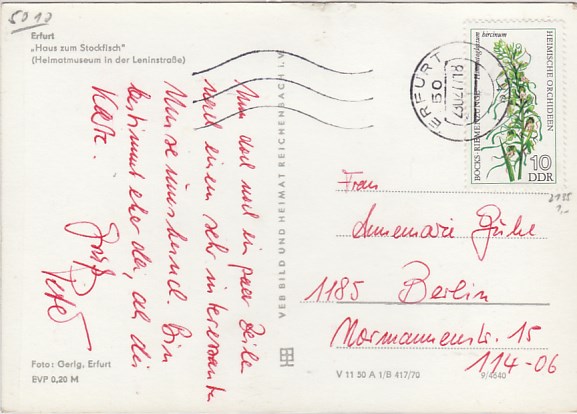 5010
Erfurt
„Haus zum Stockfisch"
(Heimatmuseum in der Leninstraße)
Nun doch noch ein paar Zeilen
nach einem sehr interessanten
Museumsbesuch. Bin
bestimmt eher da, als die
Karte.
Gruß
Peter
Foto: Gerig, Erfurt
EVP 0,20 M
VEB BILD UND HEIMAT REICHENBACH i. V.
V 11 50 A 1/B 417/70
9/4640
ERFURT
50
HEIMISCHE ORCHIDEEN
BOCKS-RIEMENZUNGE · Himantoglossum hircinum
10
DDR
2135
1,-
Frau
Annemarie
1185 Berlin
Normannenstr. 15
114-06